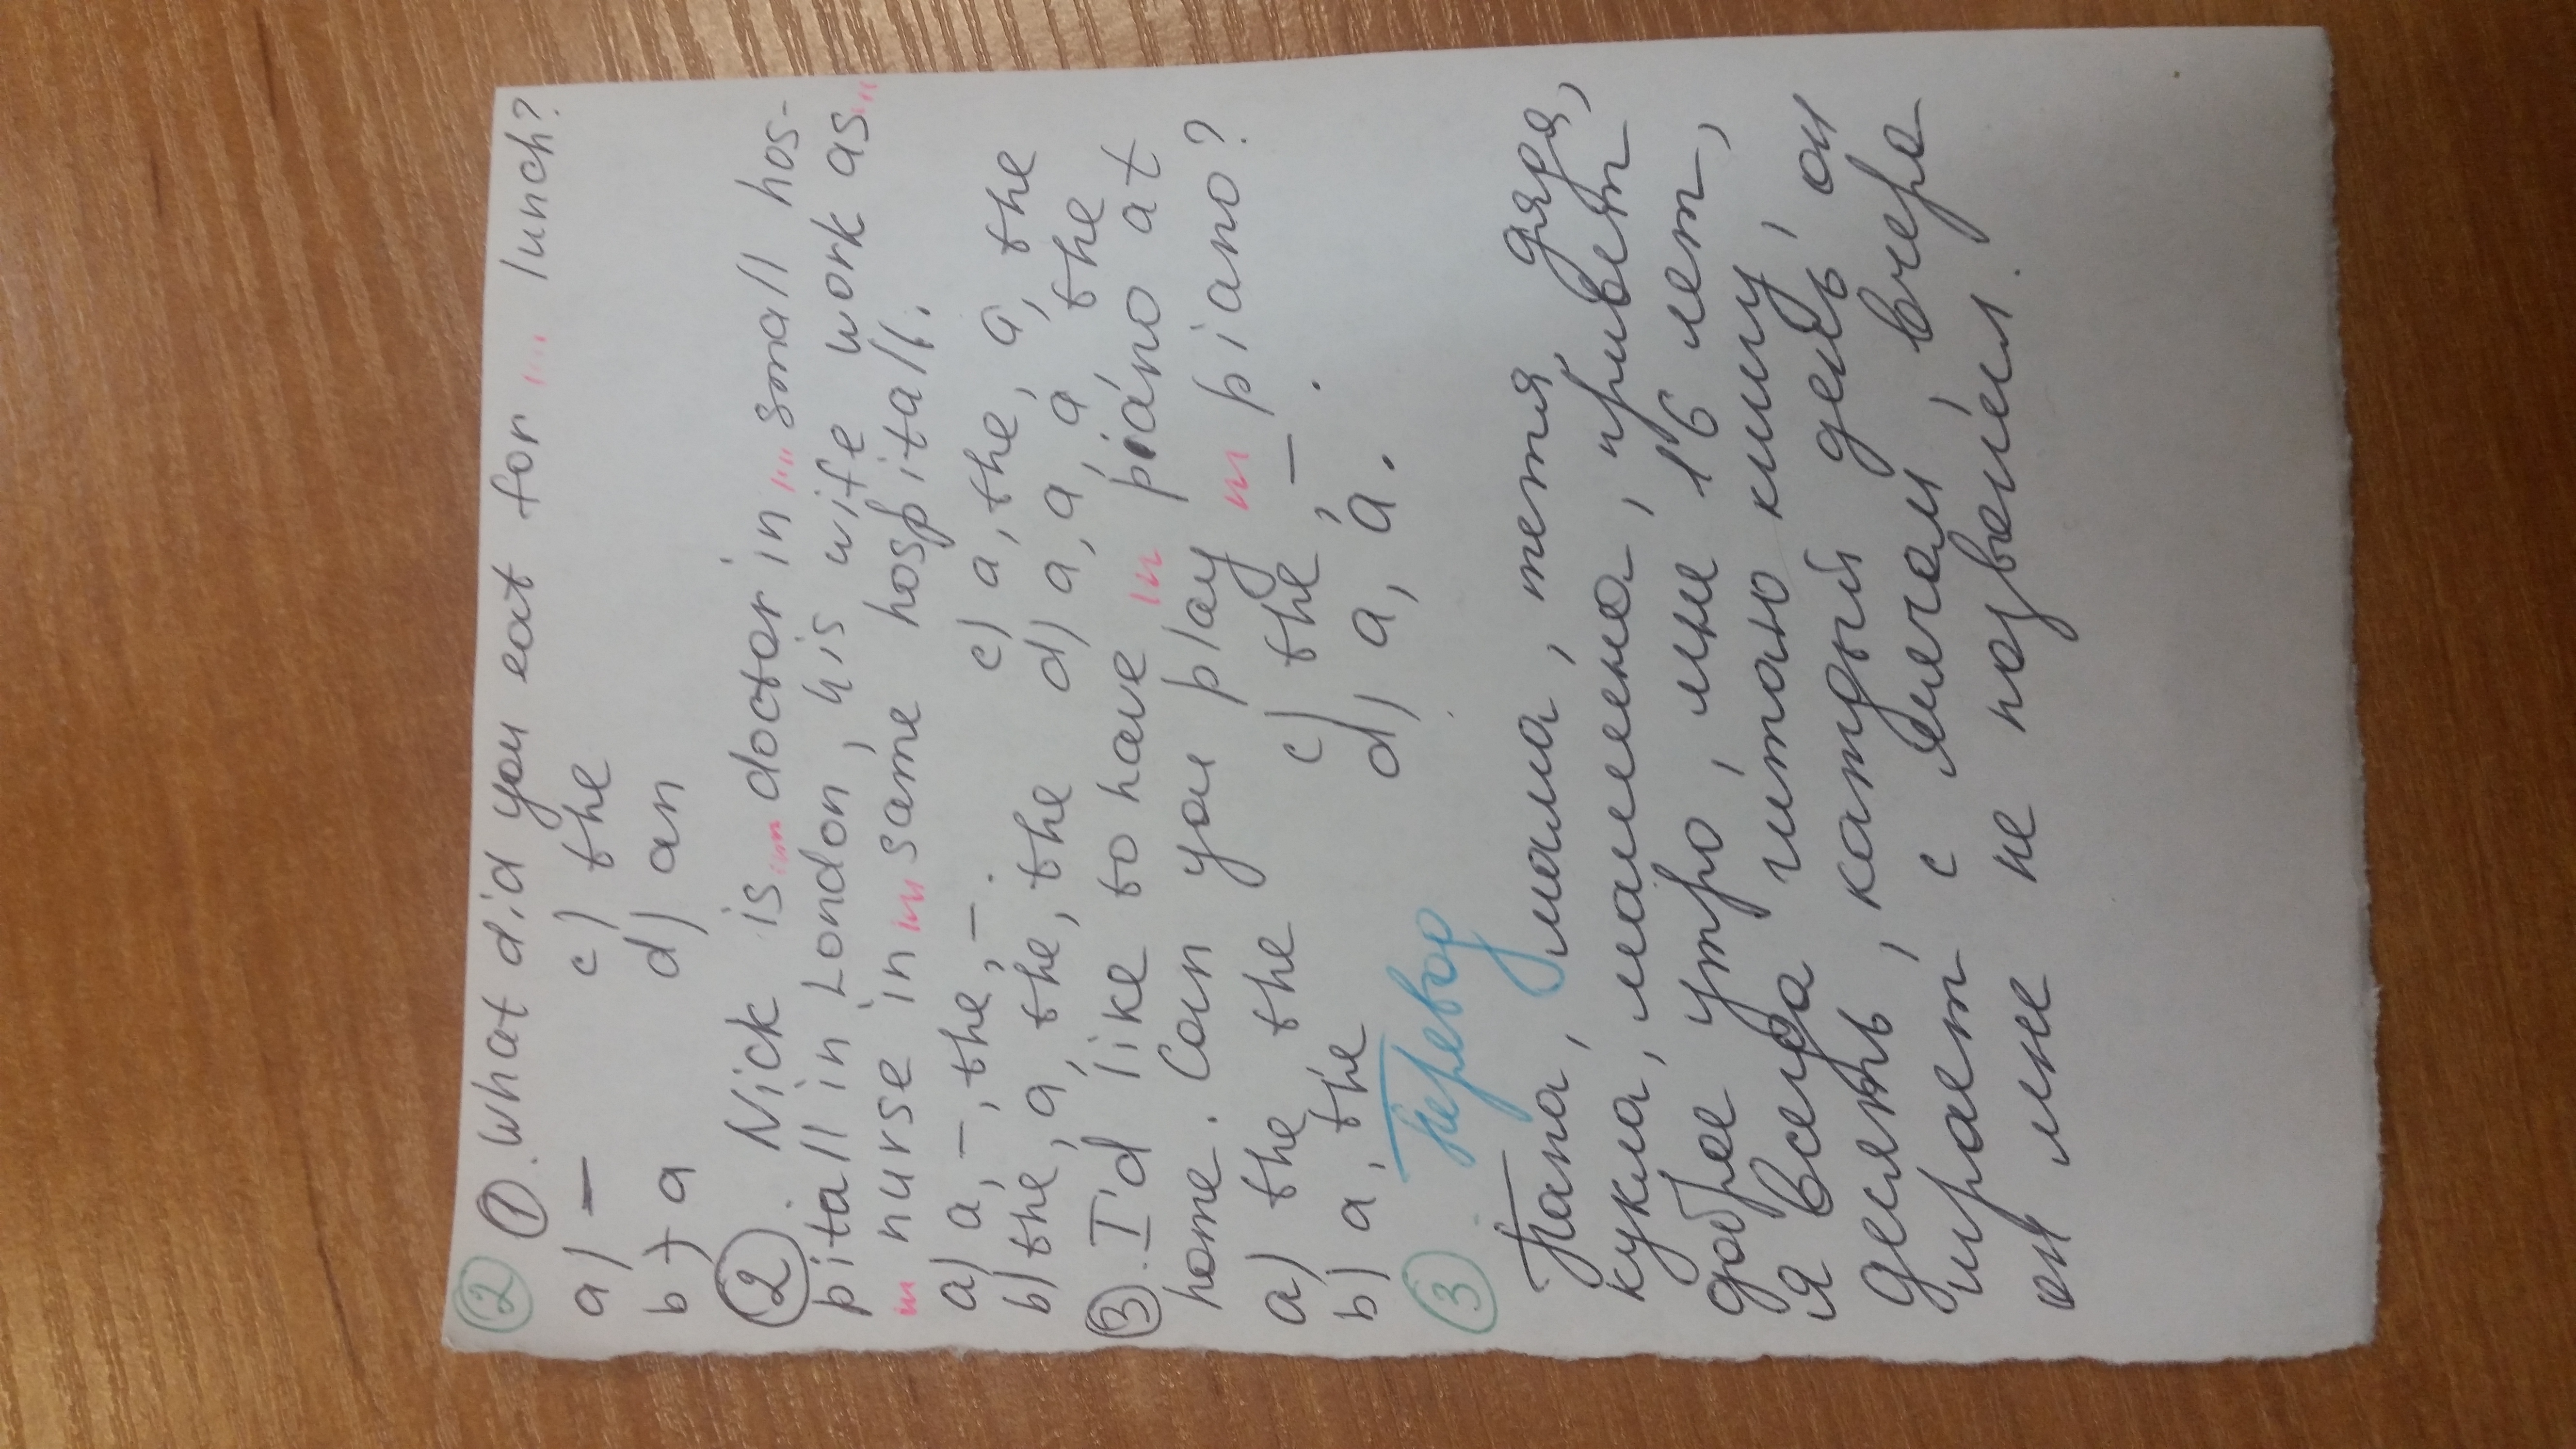 ② ①. What did you eat for .... lunch?
a) — c) the
b) a d) an
②. Nick is .... doctor in .... small hos-
pitall in London, his wife work as ...
... nurse in ... same hospitall.
a) a, —, the, —. c) a, the, a, the
b) the, a, the, the d) a, a, a, the
③. I'd like to have ... piano at
home. Can you play ... piano?
a) the the c) the, — .
b) a, the d) a, a.
③ Перевод
Папа, мама, тетя, дядя,
кукла, малыша, привет
доброе утро, мне 16 лет,
я всегда читаю книгу,
десять, каждый день, он
играет с мячом, вчера
он мне не позвонил.